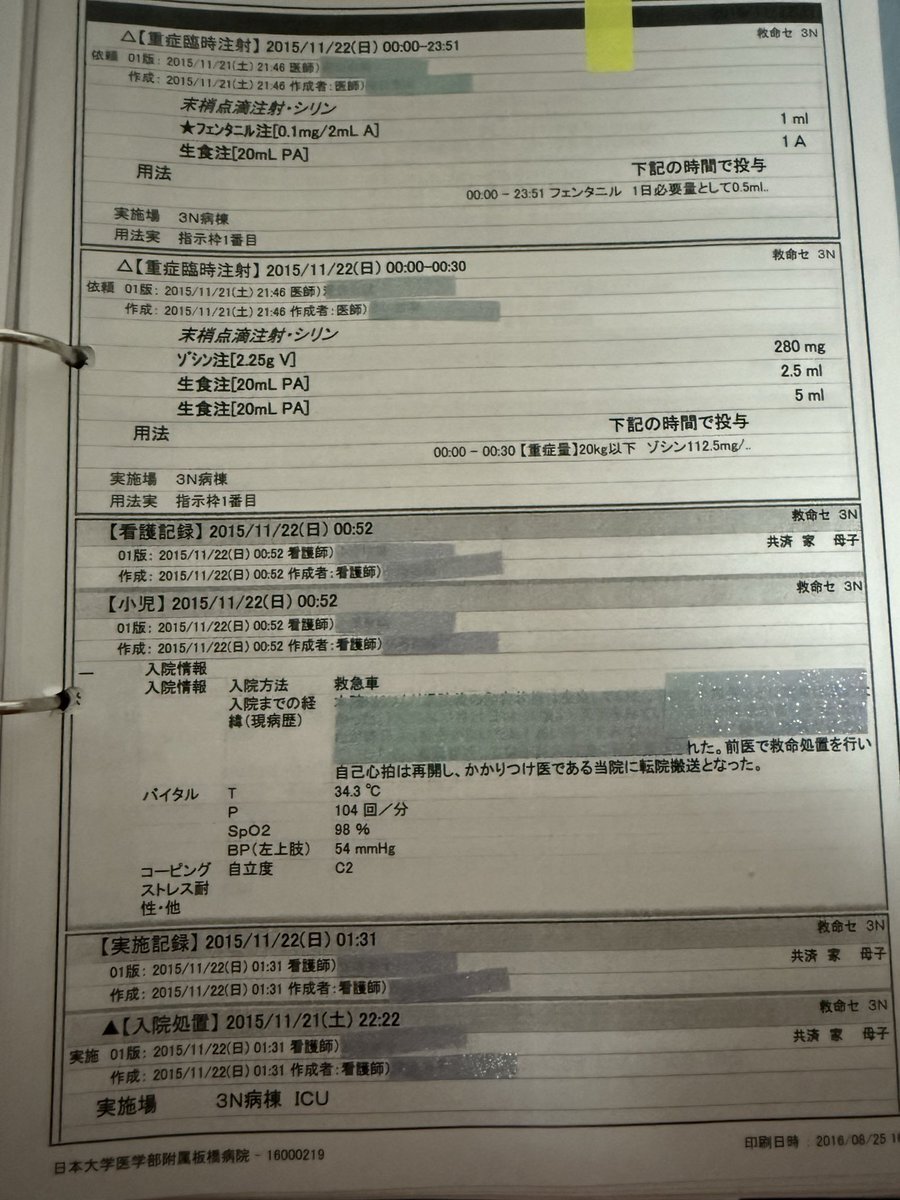 △【重症臨時注射】2015/11/22(日) 00:00-23:51 救命セ 3N
依頼 01版: 2015/11/21(土) 21:46 医師)
作成: 2015/11/21(土) 21:46 作成者:医師)
末梢点滴注射・シリン
★フェンタニル注[0.1mg/2mL A] 1 ml
生食注[20mL PA] 1 A
用法 下記の時間で投与
00:00 - 23:51 フェンタニル 1日必要量として0.5ml..
実施場 3N病棟
用法実 指示枠1番目
△【重症臨時注射】2015/11/22(日) 00:00-00:30 救命セ 3N
依頼 01版: 2015/11/21(土) 21:46 医師)
作成: 2015/11/21(土) 21:46 作成者:医師)
末梢点滴注射・シリン
ゾシン注[2.25g V] 280 mg
生食注[20mL PA] 2.5 ml
生食注[20mL PA] 5 ml
用法 下記の時間で投与
00:00 - 00:30 【重症量】20kg以下 ゾシン112.5mg/..
実施場 3N病棟
用法実 指示枠1番目
【看護記録】2015/11/22(日) 00:52 救命セ 3N
01版: 2015/11/22(日) 00:52 看護師) 共済 家 母子
作成: 2015/11/22(日) 00:52 作成者:看護師)
【小児】2015/11/22(日) 00:52 救命セ 3N
01版: 2015/11/22(日) 00:52 看護師)
作成: 2015/11/22(日) 00:52 作成者:看護師)
入院情報
入院情報 入院方法 救急車
入院までの経
緯(現病歴)
れた。前医で救命処置を行い
自己心拍は再開し、かかりつけ医である当院に転院搬送となった。
バイタル T 34.3 ℃
P 104 回/分
SpO2 98 %
BP(左上肢) 54 mmHg
コーピング 自立度 C2
ストレス耐
性・他
【実施記録】2015/11/22(日) 01:31 救命セ 3N
01版: 2015/11/22(日) 01:31 看護師) 共済 家 母子
作成: 2015/11/22(日) 01:31 作成者:看護師)
▲【入院処置】2015/11/21(土) 22:22 救命セ 3N
実施 01版: 2015/11/22(日) 01:31 看護師) 共済 家 母子
作成: 2015/11/22(日) 01:31 作成者:看護師)
実施場 3N病棟 ICU
日本大学医学部附属板橋病院 - 16000219 印刷日時 : 2016/08/25